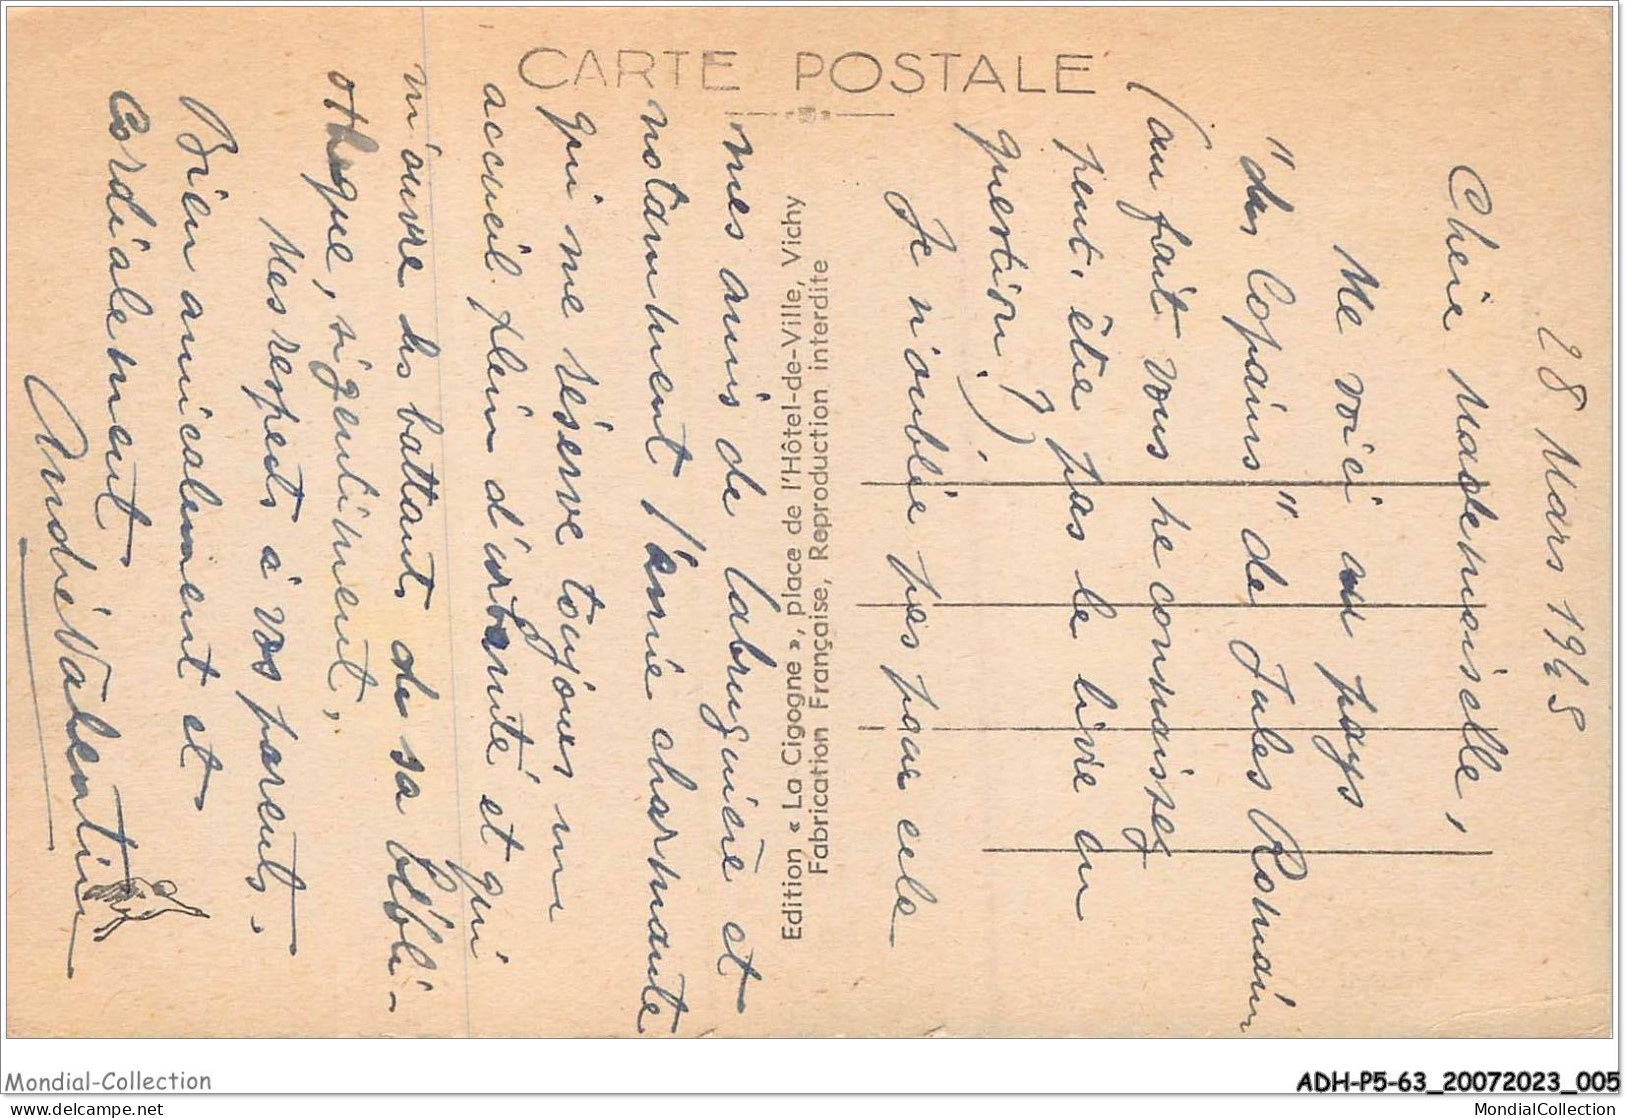 CARTE POSTALE
28 Mars 1945
Chère Mademoiselle,
Me voici au pays
"des Copains" de Jules Romains
(au fait vous ne connaissez
peut-être pas le livre en
question?)
Je n'oublie pas pour cela
mes amis de Labruguière et
notamment l'amie charmante
qui me réserve toujours un
accueil plein d'urbanité et qui
m'ouvre les battants de sa bibli-
othèque, si gentiment,
Mes respects à vos parents.
Bien amicalement et
Cordialement
André Valentin
Edition « La Cigogne », place de l'Hôtel-de-Ville, Vichy
Fabrication Française, Reproduction interdite
Mondial-Collection
ADH-P5-63_20072023_005
delcampe.net
MondialCollection